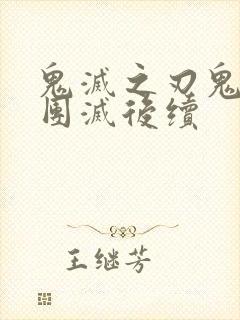 鬼滅之刃鬼
团滅後續
王继芳